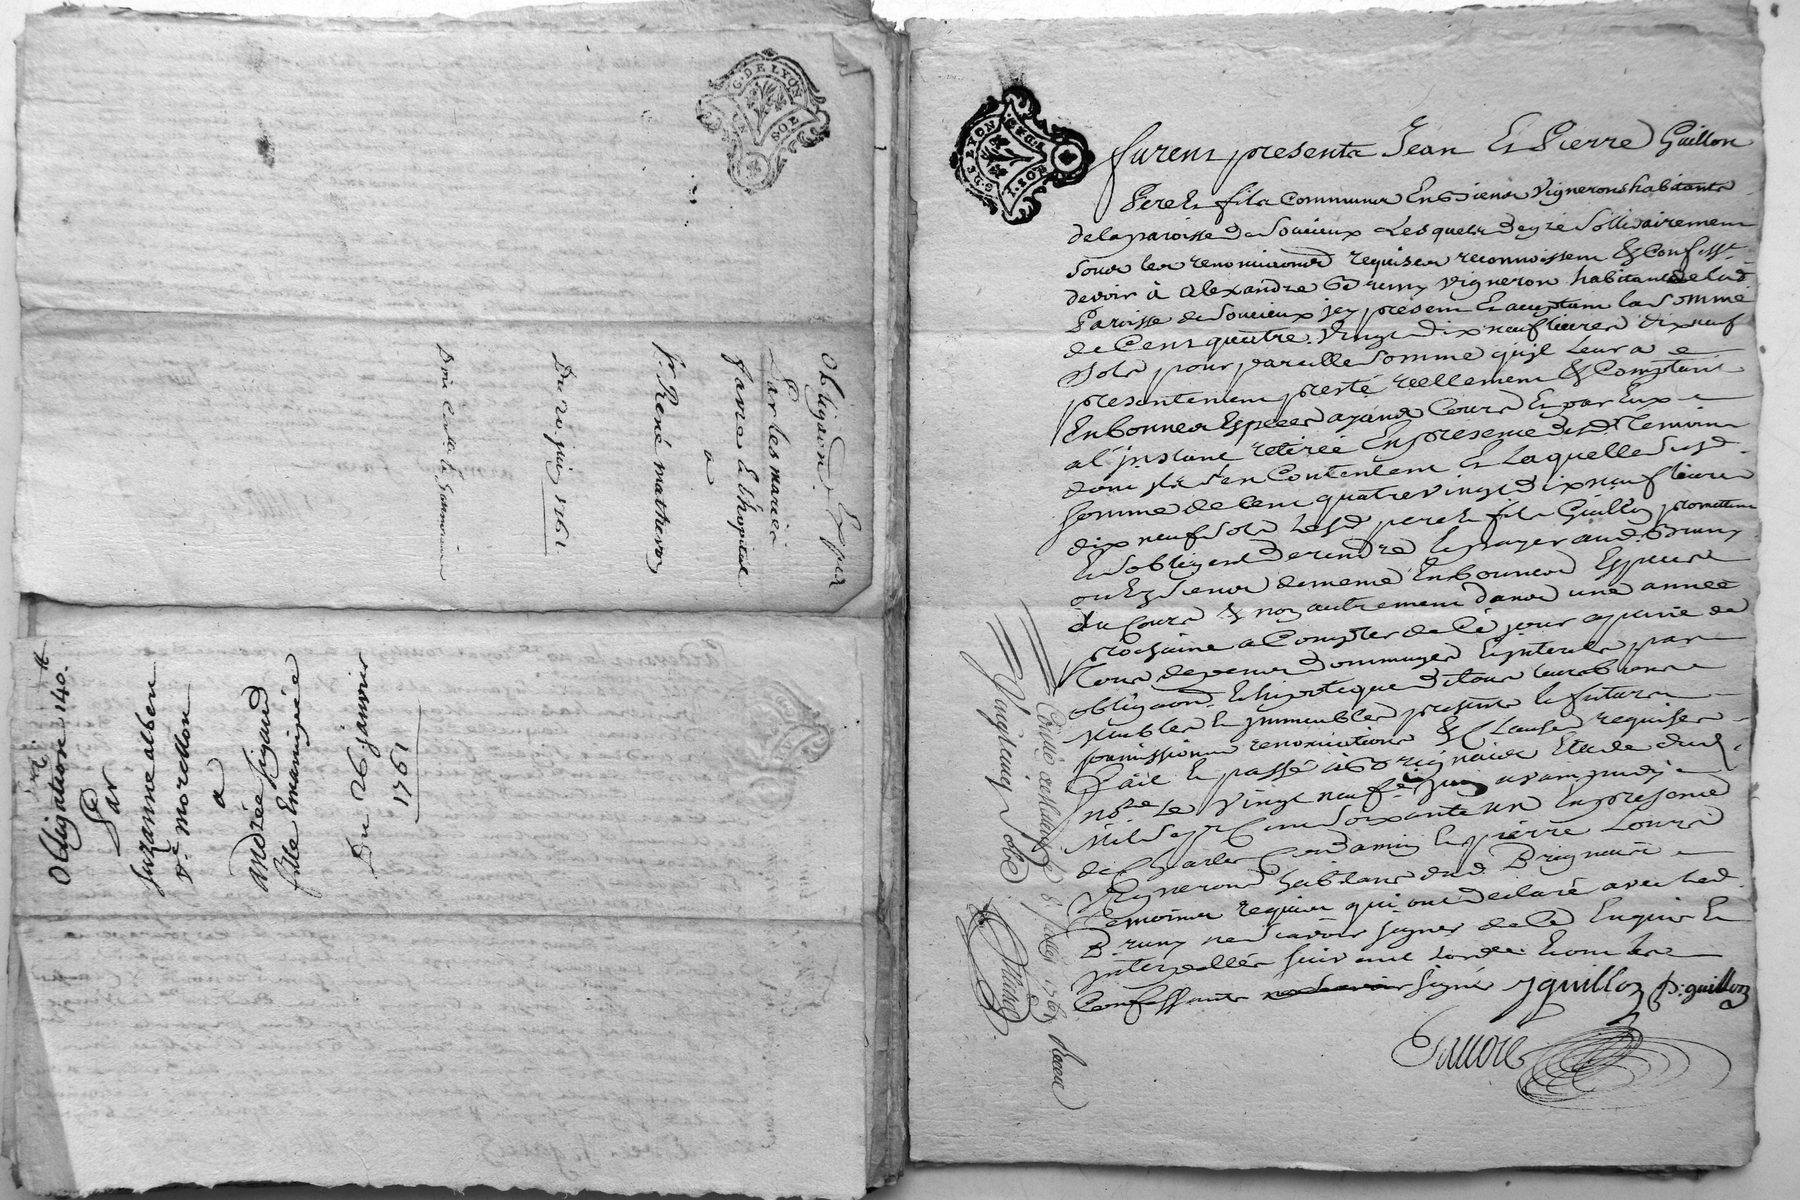 G. DE LYON
UN SOL
Obligaon. Expéd
Par les mariés
favre & Lhopital
a
Sr. René matheron
Du 20 juin 1761.
Obligation 140.tt
Par
Suzanne albert
ve. morellon
a
andrée Sigaud
fille Emancipée
Du 26 janvier
1761
G. DE LYON
furent presents Jean Et Pierre Guillon
Pere Et fils Communs En biens Vignerons habitants
de la paroisse de Soucieux Lesquels de gré Sollidairement
sous les renonciations requises reconnoissent & Confesst.
devoir à Alexandre Bruny Vigneron habitant de lad.
Paroisse de Soucieux jcy present Et acceptant la Somme
de Cent quatre Vingt dix neuf livres dix neuf
Sols pour pareille Somme qu'jl Leur a
presentement presté reellement & Comptant
En bonnes Especes ayant Cours Et par Eux
a l'jnstant retirée En presence des ts. temoins
dont jls s'En Contentent Et Laquelle susd.
Somme de Cent quatre vingt dix neuf livres
dix neuf Sols Lesd. pere Et fils Guillon promettent
Et s'obligent de rendre Et payer aud. Bruny
ou Es Siens de meme En bonnes Especes
du Cours & non autrement dans une année
prochaine a Compter de Ce jour a peine de
tous depens dommages Et jnterets par
obligaon. Et hipoteque de tous leurs biens
meubles Et jmmeubles presents Et futurs
soumissions renonciations & Clauses requises
Fait Et passé à Brignais Etude dud.
nore. Le Vingt neufe. juin avant midy
Mil Sept Cent Soixante un En presence
de Charles Et pierre
Vignerons habitans dud. Brignais
temoins requis qui ont declaré avec led.
Bruny ne Scavoir signer de Ce Enquis Et
jnterpellés suivant l'ordce. Et ont les
Confessants signé jguillon p: guillon
Vingt cinq Sols